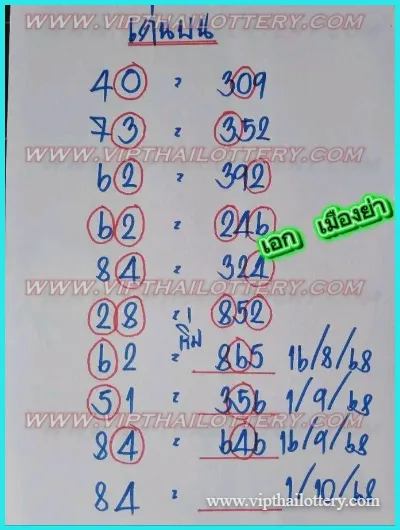 WWW.VIPTHAILOTTERY.COM
เด่นบน
40 = 309
73 = 352
WWW.VIPTHAILOTTERY.COM
62 = 392
62 = 246
เอก เมืองย่า
84 = 324
WWW.VIPTHAILOTTERY.COM
28 = 852
ทีม
62 = 865 16/8/68
51 = 356 1/9/68
WWW.VIPTHAILOTTERY.COM
84 = 646 16/9/68
84 = 1/10/68
www.vipthailottery.com